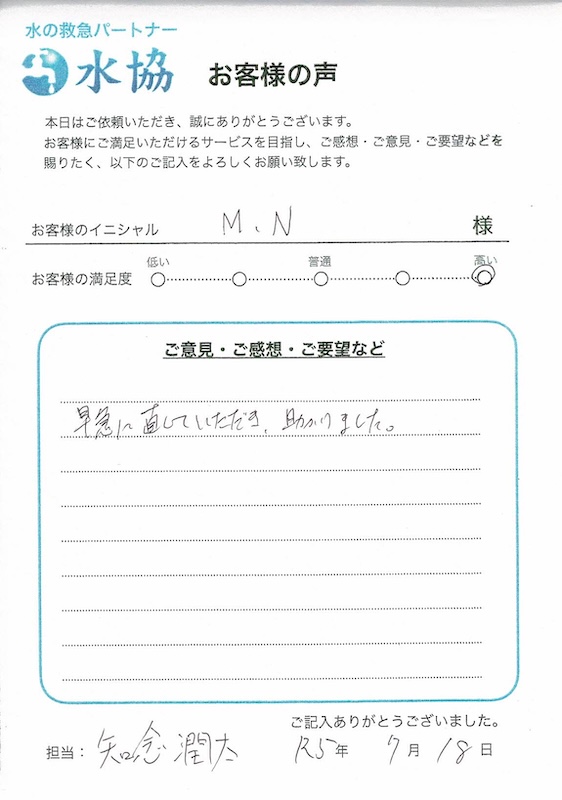 水の救急パートナー
水協 お客様の声
本日はご依頼いただき、誠にありがとうございます。
お客様にご満足いただけるサービスを目指し、ご感想・ご意見・ご要望などを
賜りたく、以下のご記入をよろしくお願い致します。
お客様のイニシャル M、N 様
低い 普通 高い
お客様の満足度
ご意見・ご感想・ご要望など
早急に直していただき、助かりました。
ご記入ありがとうございました。
担当： 知念潤太 R5年 7月 18日